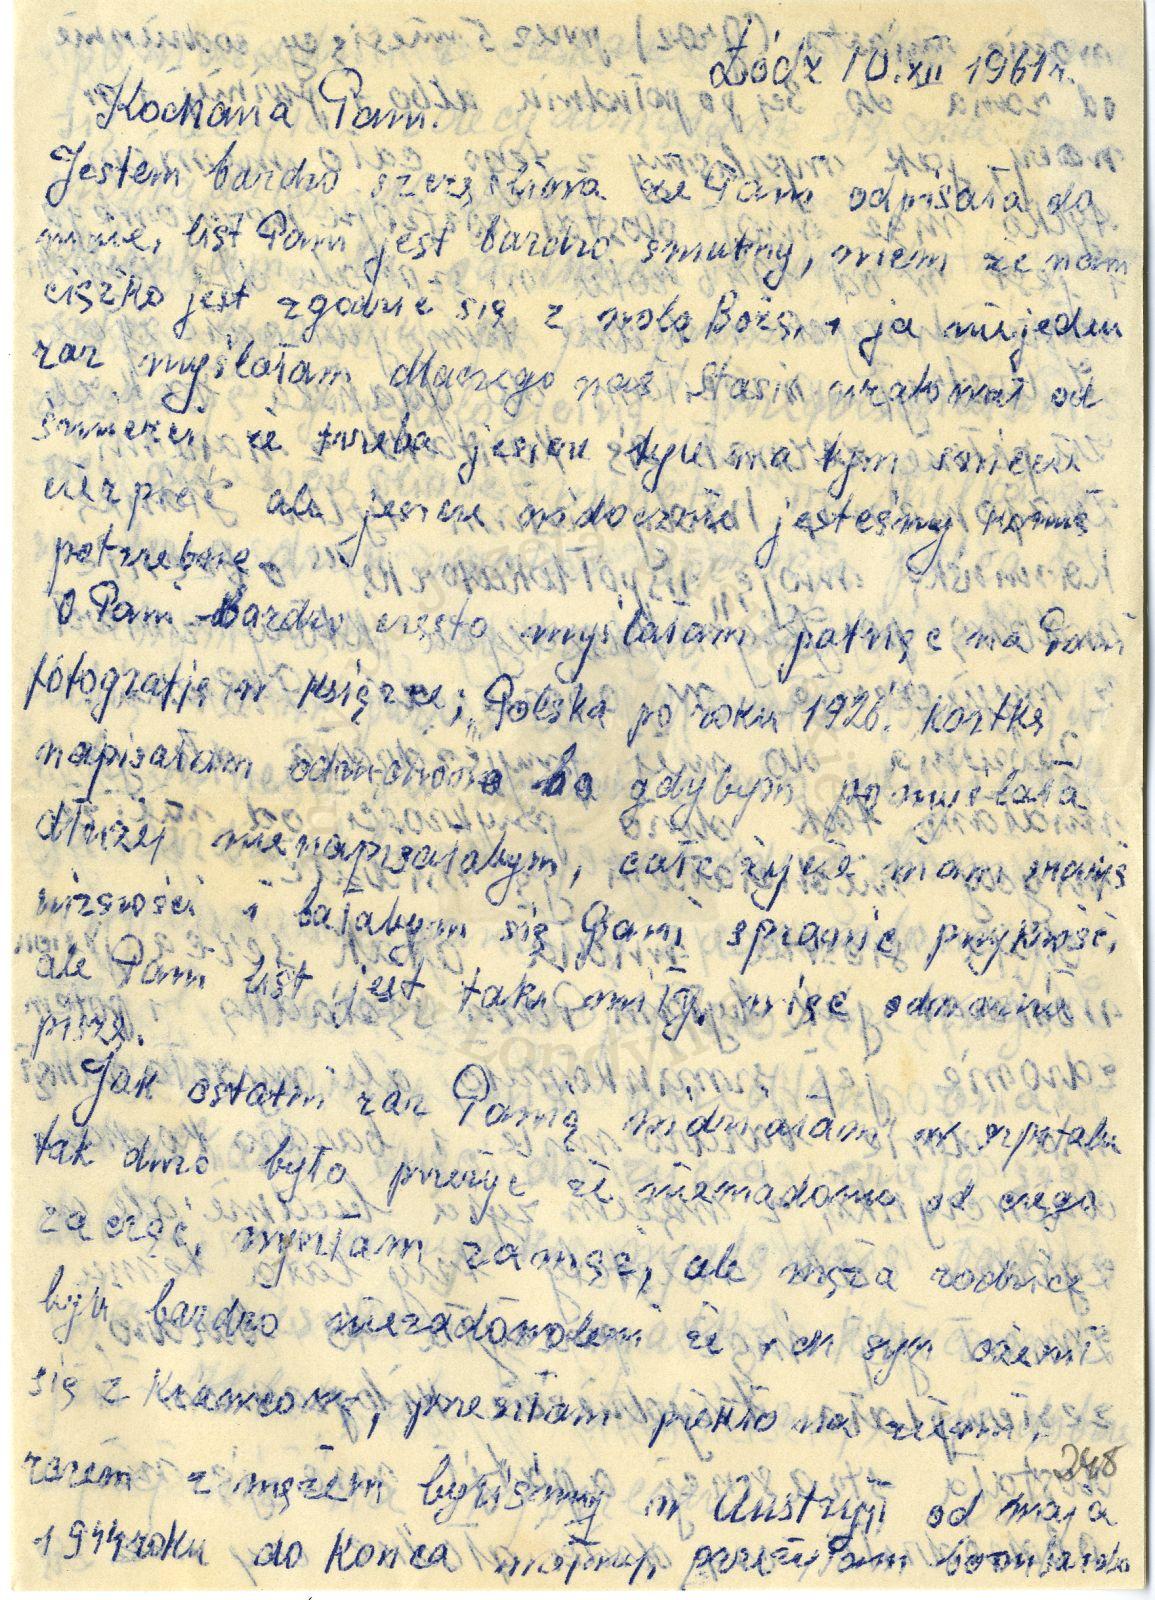 Łódź 10.XII 1961 r.
Kochana Pani.
Jestem bardzo szczęśliwa że Pani odpisała do
mnie, list Pani jest bardzo smutny, wiem że nam
ciężko jest zgodzić się z wolą Bożą, i ja niejeden
raz myślałam dlaczego nas Stasik uratował od
śmierci że trzeba jeszcze tyle na tym świecie
cierpieć ale jeszcze widocznie jesteśmy komuś
potrzebne.
O Pani bardzo często myślałam patrząc na Pani
fotografję w książce; "Polska po roku 1926. Kartkę
napisałam odruchowo bo gdybym pomyślała
dłużej nienapisałabym, całe życie mam
niższości i bałabym się Pani sprawić przykrość,
ale Pani list jest taki miły, więc odważnie
piszę.
Jak ostatni raz Panią widziałam w szpitalu
tak dużo było przeżyć że niewiadomo od czego
zacząć, wyszłam zamąż, ale męża rodzice
byli bardzo niezadowoleni że ich syn ożenił
się z krawcową, przeszłam piekło na ziemi,
razem z mężem byliśmy w Austryji od maja
1944 roku do końca wojny, przeżyłam bombardo
248